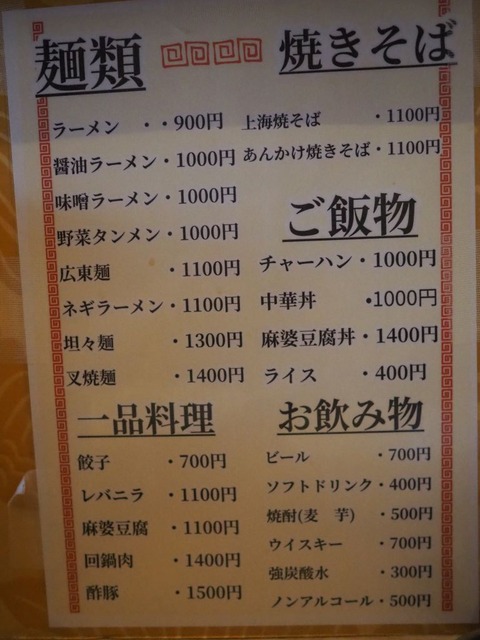 麺類
ラーメン ・・900円
醤油ラーメン・1000円
味噌ラーメン・1000円
野菜タンメン・1000円
広東麺 ・1100円
ネギラーメン・1100円
坦々麺 ・1300円
叉焼麺 ・1400円
一品料理
餃子 ・700円
レバニラ ・1100円
麻婆豆腐 ・1100円
回鍋肉 ・1400円
酢豚 ・1500円
焼きそば
上海焼そば ・1100円
あんかけ焼きそば・1100円
ご飯物
チャーハン・1000円
中華丼 •1000円
麻婆豆腐丼・1400円
ライス ・400円
お飲み物
ビール ・700円
ソフトドリンク・400円
焼酎(麦 芋) ・500円
ウイスキー ・700円
強炭酸水 ・300円
ノンアルコール・500円